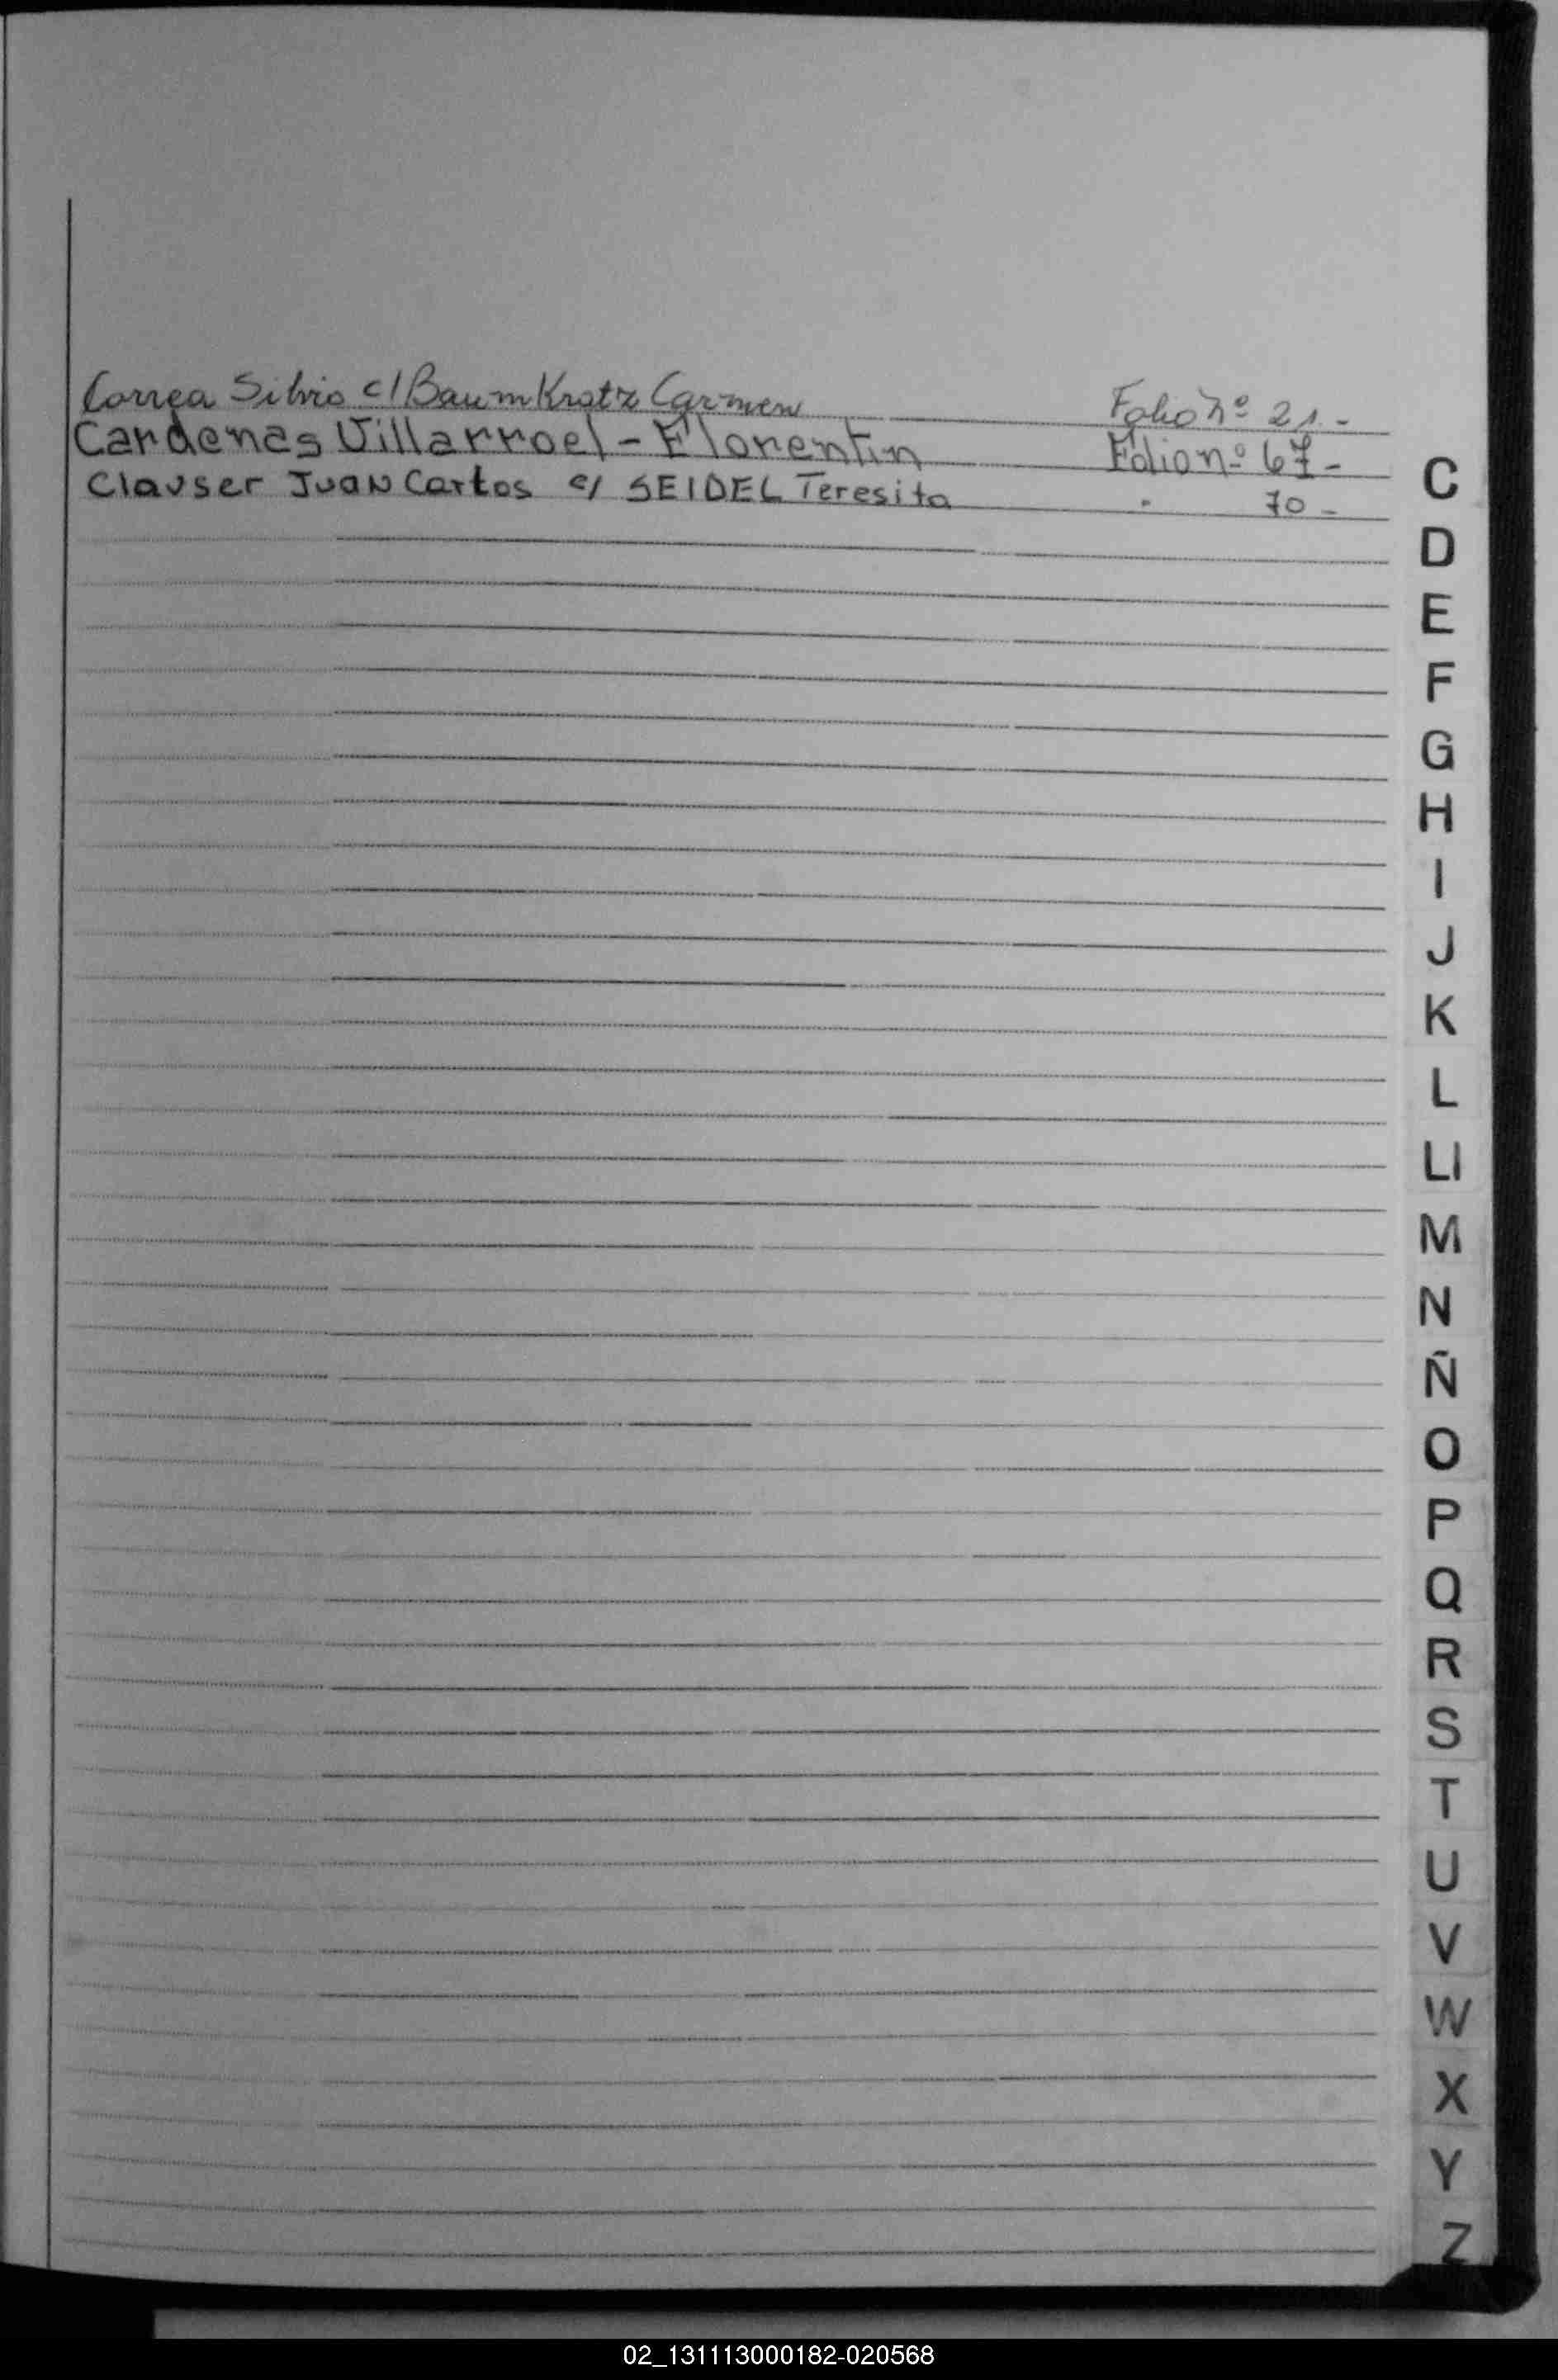 Correa Silvio c/ BaumKratz Carmen Folio Nº 21.-
Cardenas Villarroel - Florentin Folio nº 67-
Clauser Juan Carlos c/ SEIDEL Teresita " 70-
C
D
E
F
G
H
I
J
K
L
Ll
M
N
Ñ
O
P
Q
R
S
T
U
V
W
X
Y
Z
02_131113000182-020568